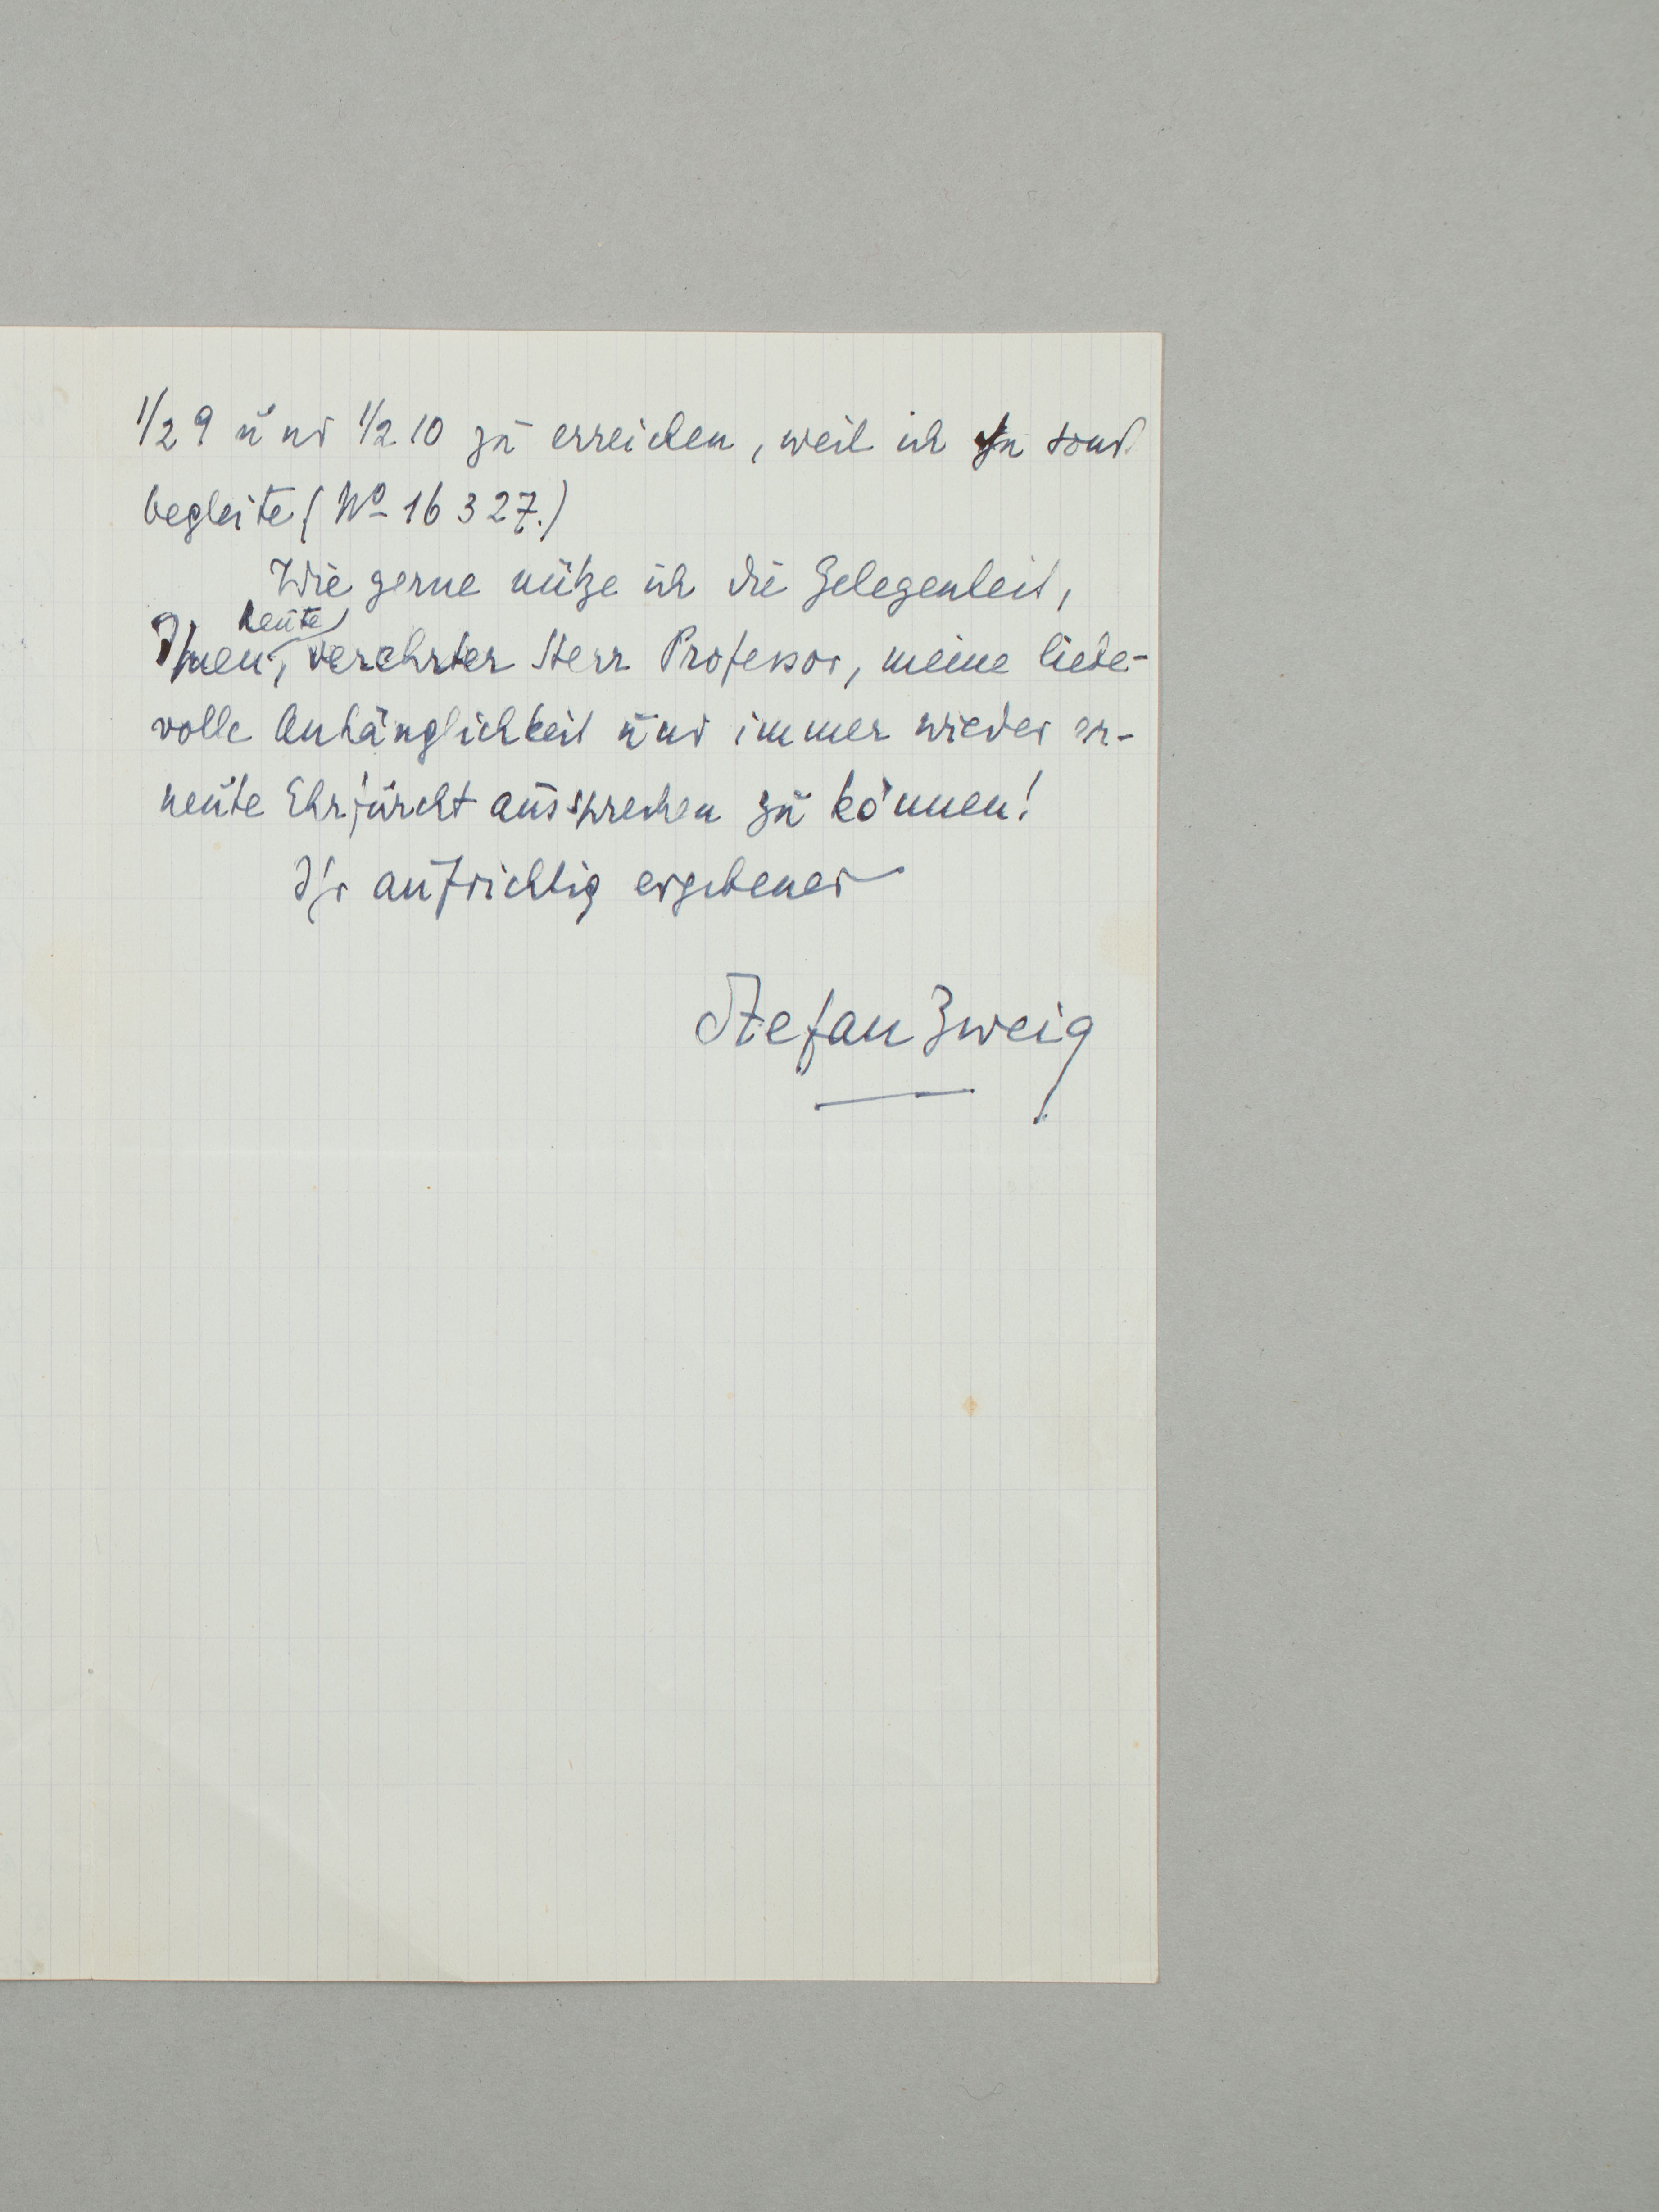 1/2 9 und 1/2 10 zu erreichen, weil ich ihn sonst
begleite (No 16 3 27.)
Wie gerne nütze ich die Gelegenheit,
heute
Ihnen, verehrter Herr Professor, meine liebe-
volle Anhänglichkeit und immer wieder er-
neute Ehrfurcht aussprechen zu können!
Ihr aufrichtig ergebener
Stefan Zweig